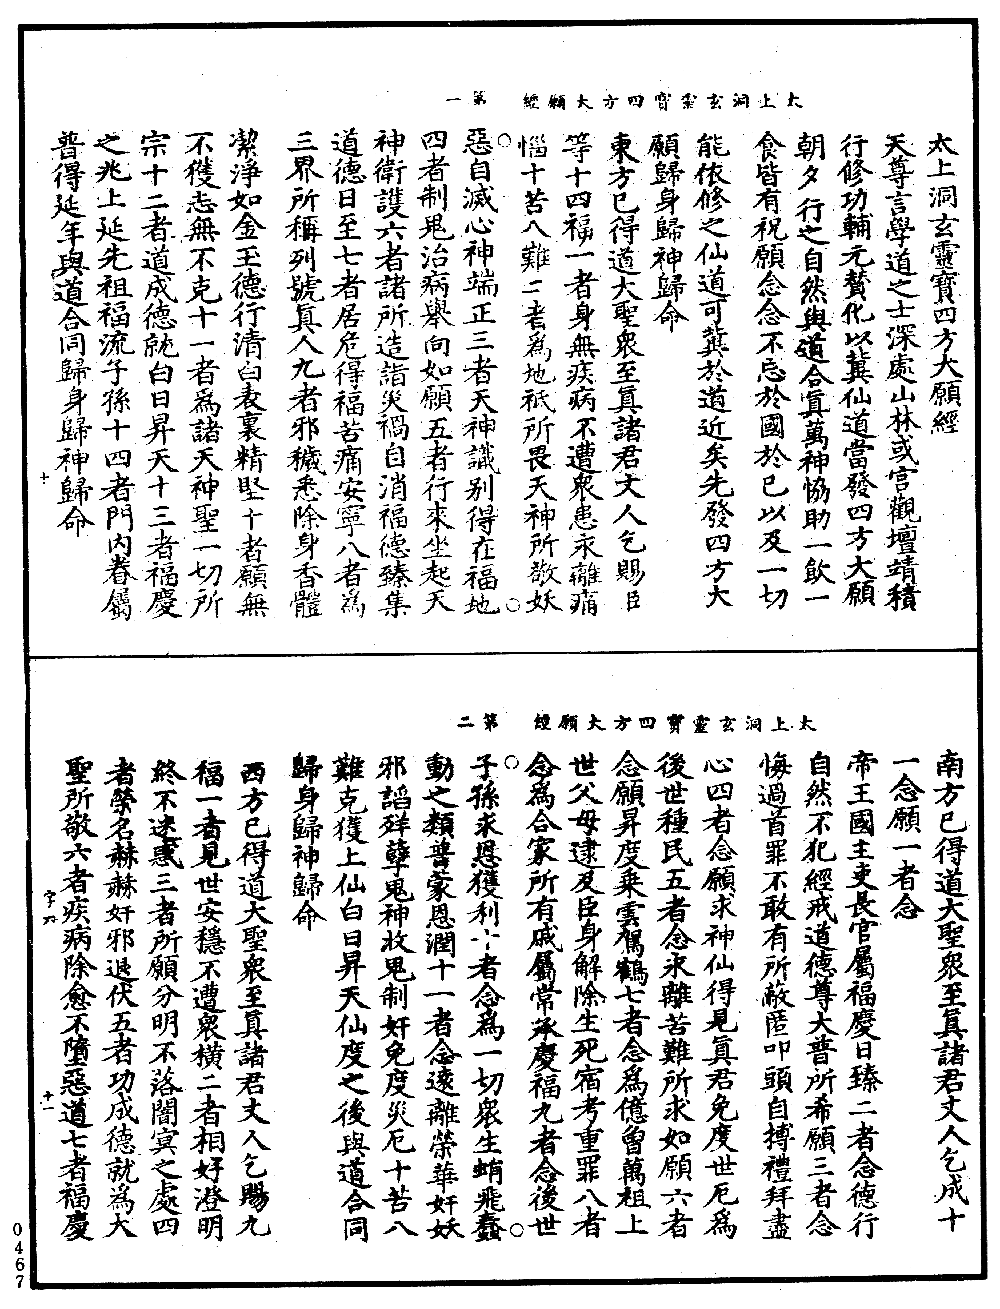 太上洞玄靈寶四方大願經　第一
太上洞玄靈寶四方大願經
天尊言學道之士深處山林或宮觀壇靖積
行修功輔元贊化以冀仙道當發四方大願
朝夕行之自然與道合真萬神恊助一飲一
食皆有祝願念念不忘於國於已以及一切
能依修之仙道可冀於道近矣先發四方大
願歸身歸神歸命
東方已得道大聖衆至真諸君丈人乞賜臣
等十四福一者身無疾病不遭衆患永離痛
惱十苦八難二者為地祇所畏天神所敬妖
惡自滅心神端正三者天神識別得在福地
四者制鬼治病舉向如願五者行來坐起天
神衛護六者諸所造詣災禍自消福德臻集
道德日至七者居危得福苦痛安寧八者為
三界所稱列號真人九者邪穢悉除身香體
潔淨如金玉德行清白表裏精堅十者願無
不獲志無不克十一者為諸天神聖一切所
宗十二者道成德就白日昇天十三者福慶
之兆上延先祖福流子孫十四者門內眷屬
普得延年與道合同歸身歸神歸命
十
太上洞玄靈寶四方大願經　第二
南方已得道大聖衆至真諸君丈人乞成十
一念願一者念
帝王國主吏長官屬福慶日臻二者念德行
自然不犯經戒道德尊大普所希願三者念
悔過首罪不敢有所蔽匿叩頭自搏禮拜盡
心四者念願求神仙得見真君免度世厄為
後世種民五者念永離苦難所求如願六者
念願昇度乗雲駕鶴七者念為億曾萬祖上
世父母逮及臣身解除生死宿考重罪八者
念為合家所有戚屬常承慶福九者念後世
子孫求恩獲利十者念為一切衆生蛸飛蠢
動之類普蒙恩潤十一者念遠離榮華奸妖
邪謟殍孽鬼神收鬼制奸免度災厄十苦八
難克獲上仙白日昇天仙度之後與道合同
歸身歸神歸命
西方已得道大聖衆至真諸君丈人乞賜九
福一者見世安穩不遭衆橫二者相好澄明
終不迷惑三者所願分明不落闇冥之處四
者榮名赫赫奸邪退伏五者功成德就為大
聖所敬六者疾病除愈不墮惡道七者福慶
十一
0467